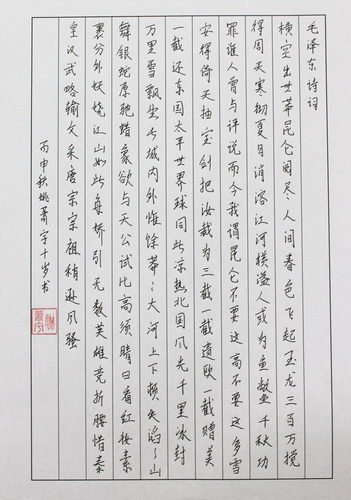 毛泽东诗词
横空出世莽昆仑阅尽人间春色飞起玉龙三百万搅
得周天寒彻夏日消溶江河横溢人或为鱼鳖千秋功
罪谁人曾与评说而今我谓昆仑不要这高不要这多雪
安得倚天抽宝剑把汝裁为三截一截遗欧一截赠美
一截还东国太平世界球同此凉热北国风光千里冰封
万里雪飘望长城内外惟馀莽々大河上下顿失滔々山
舞银蛇原驰蜡象欲与天公试比高须晴日看红妆素
裹分外妖娆江山如此多娇引无数英雄竞折腰惜秦
皇汉武略输文采唐宗宋祖稍逊风骚
丙申秋姚宇十岁书